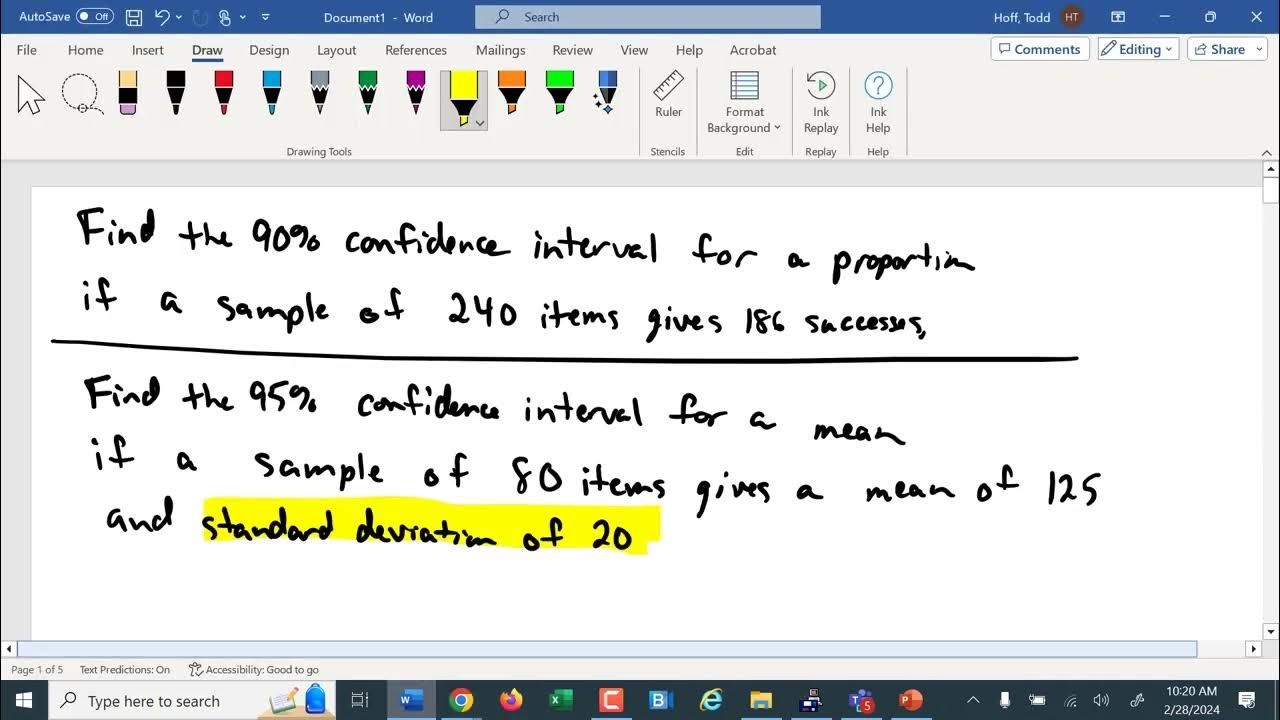 AutoSave Off Document1 - Word Search Hoff, Todd HT
File Home Insert Draw Design Layout References Mailings Review View Help Acrobat Comments Editing Share
Ruler Format Background Ink Replay Ink Help
Drawing Tools Stencils Edit Replay Help
Find the 90% confidence interval for a proportion
if a sample of 240 items gives 186 successes,
Find the 95% confidence interval for a mean
if a sample of 80 items gives a mean of 125
and standard deviation of 20
Page 1 of 5 Text Predictions: On Accessibility: Good to go
Type here to search 10:20 AM
2/28/2024